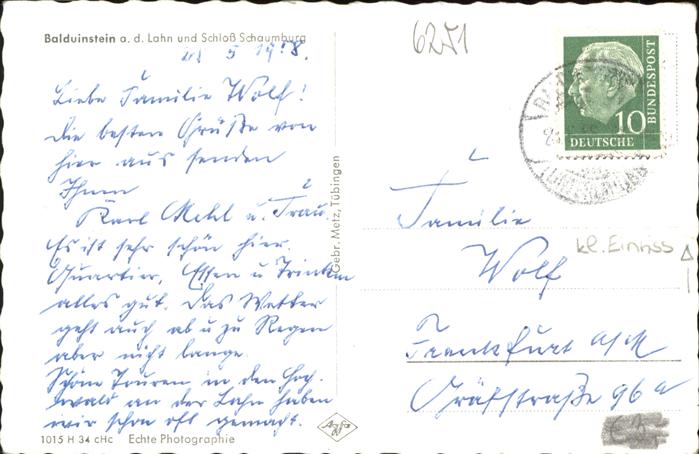 Balduinstein a. d. Lahn und Schloß Schaumburg
6251
5 19
Liebe Familie Wolf!
Die besten Grüße von
hier aus senden
Ihnen
Karl Mehl u. Frau.
Es ist sehr schön hier.
Quartier, Essen u Trinken
alles gut. Das Wetter
geht auch ab u zu Regen
aber nicht lange.
Schöne Touren in den Hoch
wald an der Lahn haben
wir schon oft gemacht.
1015 H 34 cHc Echte Photographie
Agfa
Gebr. Metz, Tübingen
10
DEUTSCHE
BUNDESPOST
Familie
Wolf
kl. Einriss
Frankfurt a/M
Gräfstraße 96a